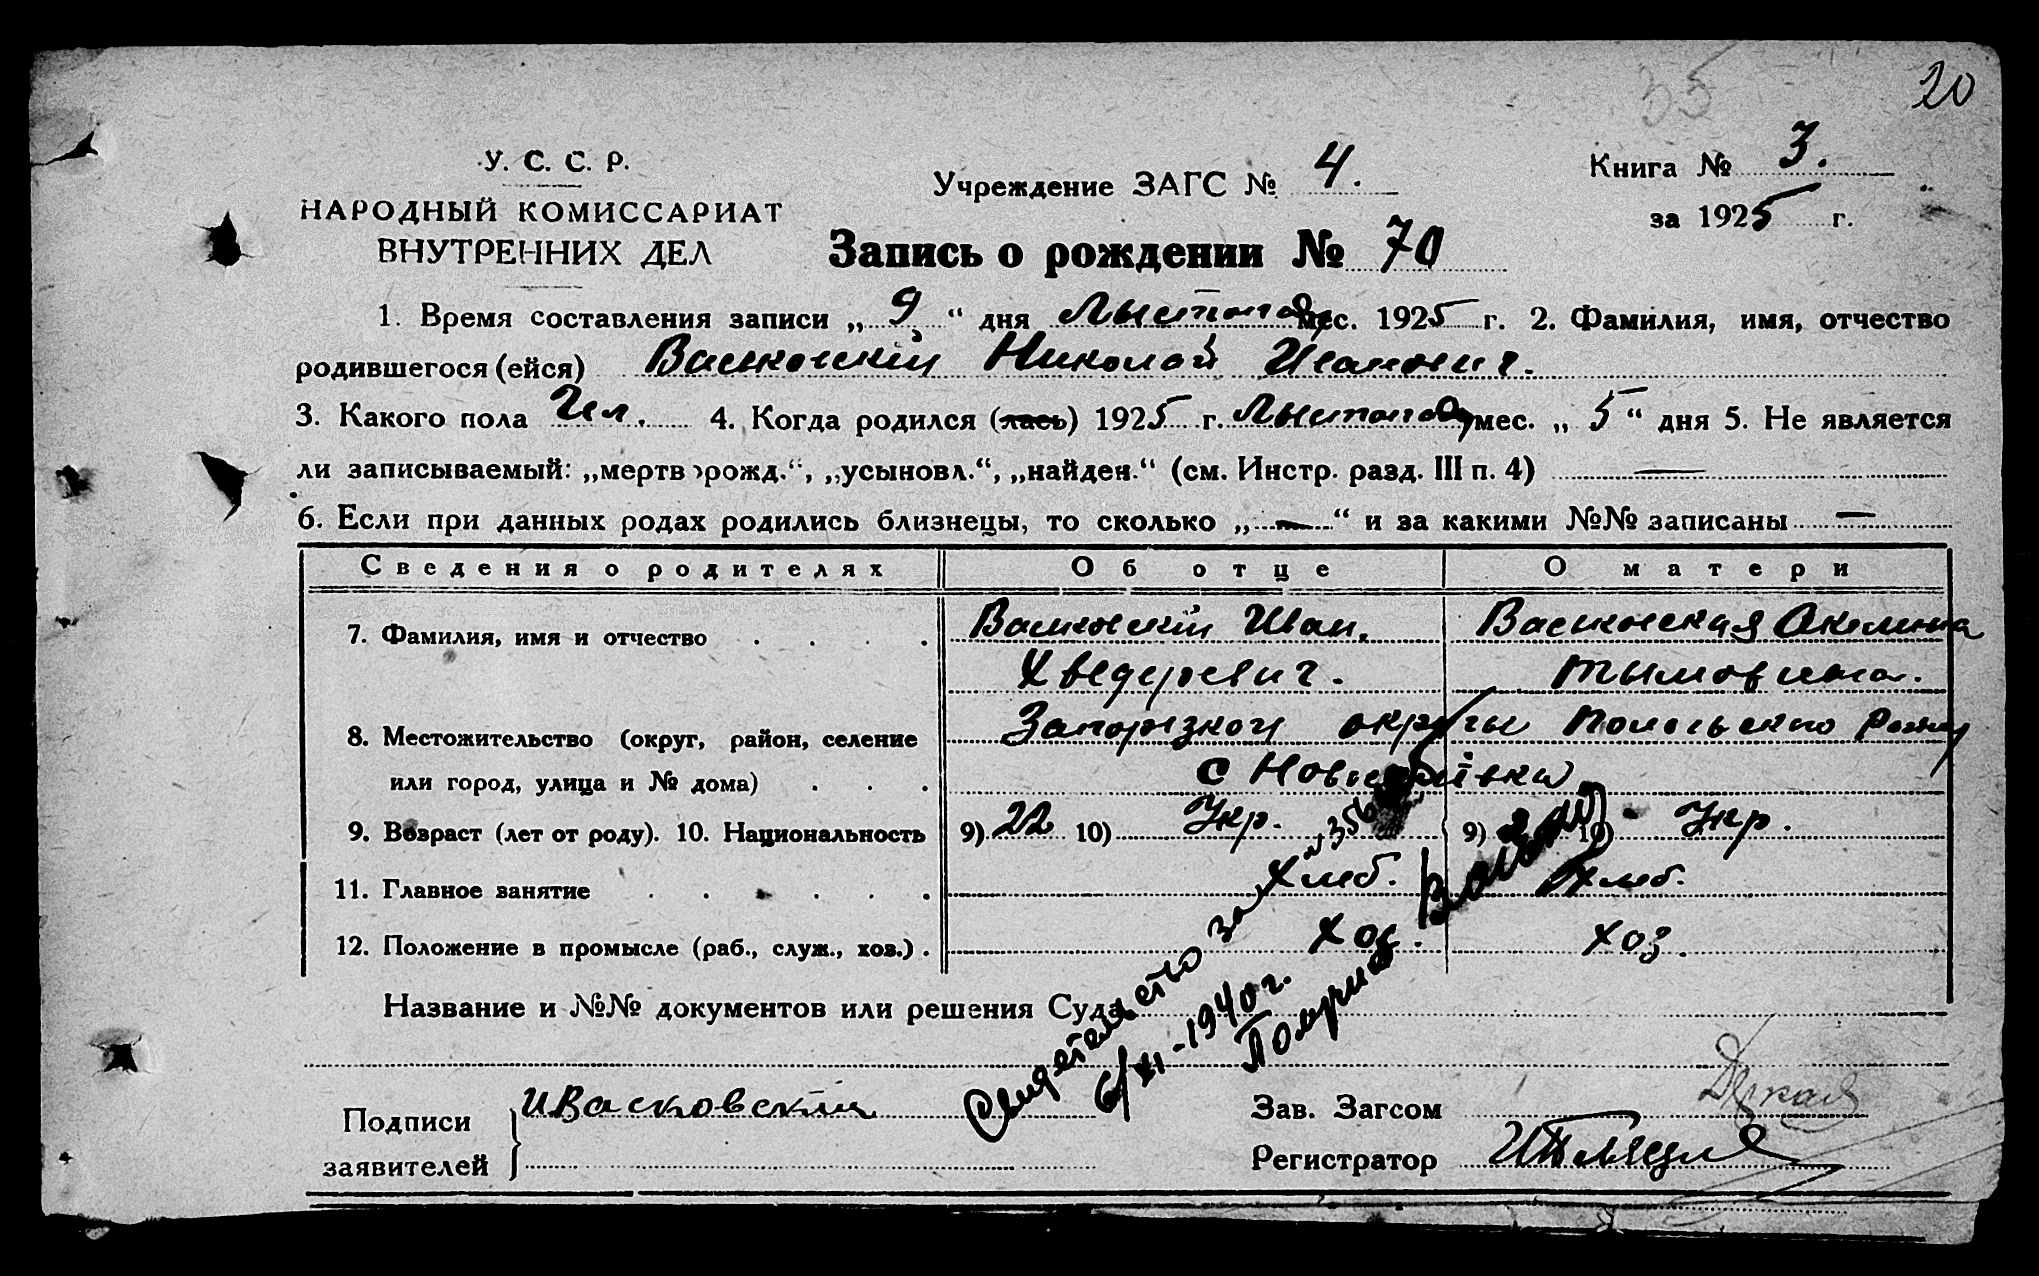 35 20
У. С. С. Р.
НАРОДНЫЙ КОМИССАРИАТ
ВНУТРЕННИХ ДЕЛ
Учреждение ЗАГС № 4.
Книга № 3.
за 1925 г.
Запись о рождении № 70
1. Время составления записи „ 9 “ дня Лыстопад мес. 1925 г. 2. Фамилия, имя, отчество
родившегося (ейся) Васковский Николай Иванович.
3. Какого пола Чол. 4. Когда родился (лась) 1925 г. Лыстопад мес. „ 5 “ дня 5. Не является
ли записываемый: „мертворожд.“, „усыновл.“, „найден.“ (см. Инстр. разд. III п. 4) —
6. Если при данных родах родились близнецы, то сколько „ — “ и за какими №№ записаны —
Сведения о родителях Об отце О матери
7. Фамилия, имя и отчество Васковскій Иван. Васковская Акелина
Хведеревич. Тымовієвна.
8. Местожительство (округ, район, селение Запорізкой округы
или город, улица и № дома) с
9. Возраст (лет от роду). 10. Национальность 9) 22 10) Укр. 9) 10) Укр.
11. Главное занятие Хліб. Хліб.
12. Положение в промысле (раб., служ., хоз.) Хоз. Хоз.
Название и №№ документов или решения Суда
Свидетельство за № 356
6/XI-1940 г.
Получил
Подписи ИВасковскій
заявителей
Зав. Загсом
Регистратор